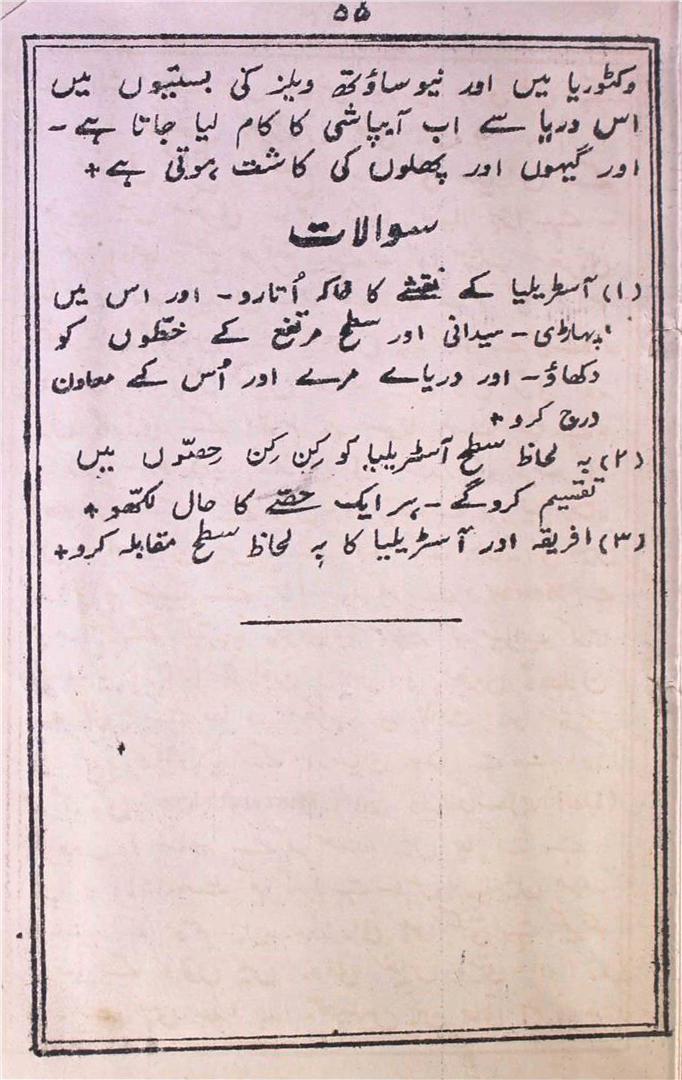 ۵۵
وکٹوریا میں اور نیو ساؤتھ ویلز کی بستیوں میں
اس دریا سے اب آبپاشی کا کام لیا جاتا ہے۔
اور گیہوں اور پھلوں کی کاشت ہوتی ہے +
سوالات
(۱) آسٹریلیا کے نقشے کا خاکہ اُتارو۔ اور اس میں
پہاڑی۔ میدانی اور سطح مرتفع کے خطّوں کو
دکھاؤ۔ اور دریاے مرے اور اُس کے معاون
درج کرو +
(۲) بہ لحاظ سطح آسٹریلیا کو کِن کِن حِصّوں میں
تقسیم کروگے۔ ہر ایک حِصّے کا حال لکھّو +
(۳) افریقہ اور آسٹریلیا کا بہ لحاظ سطح مقابلہ کرو +